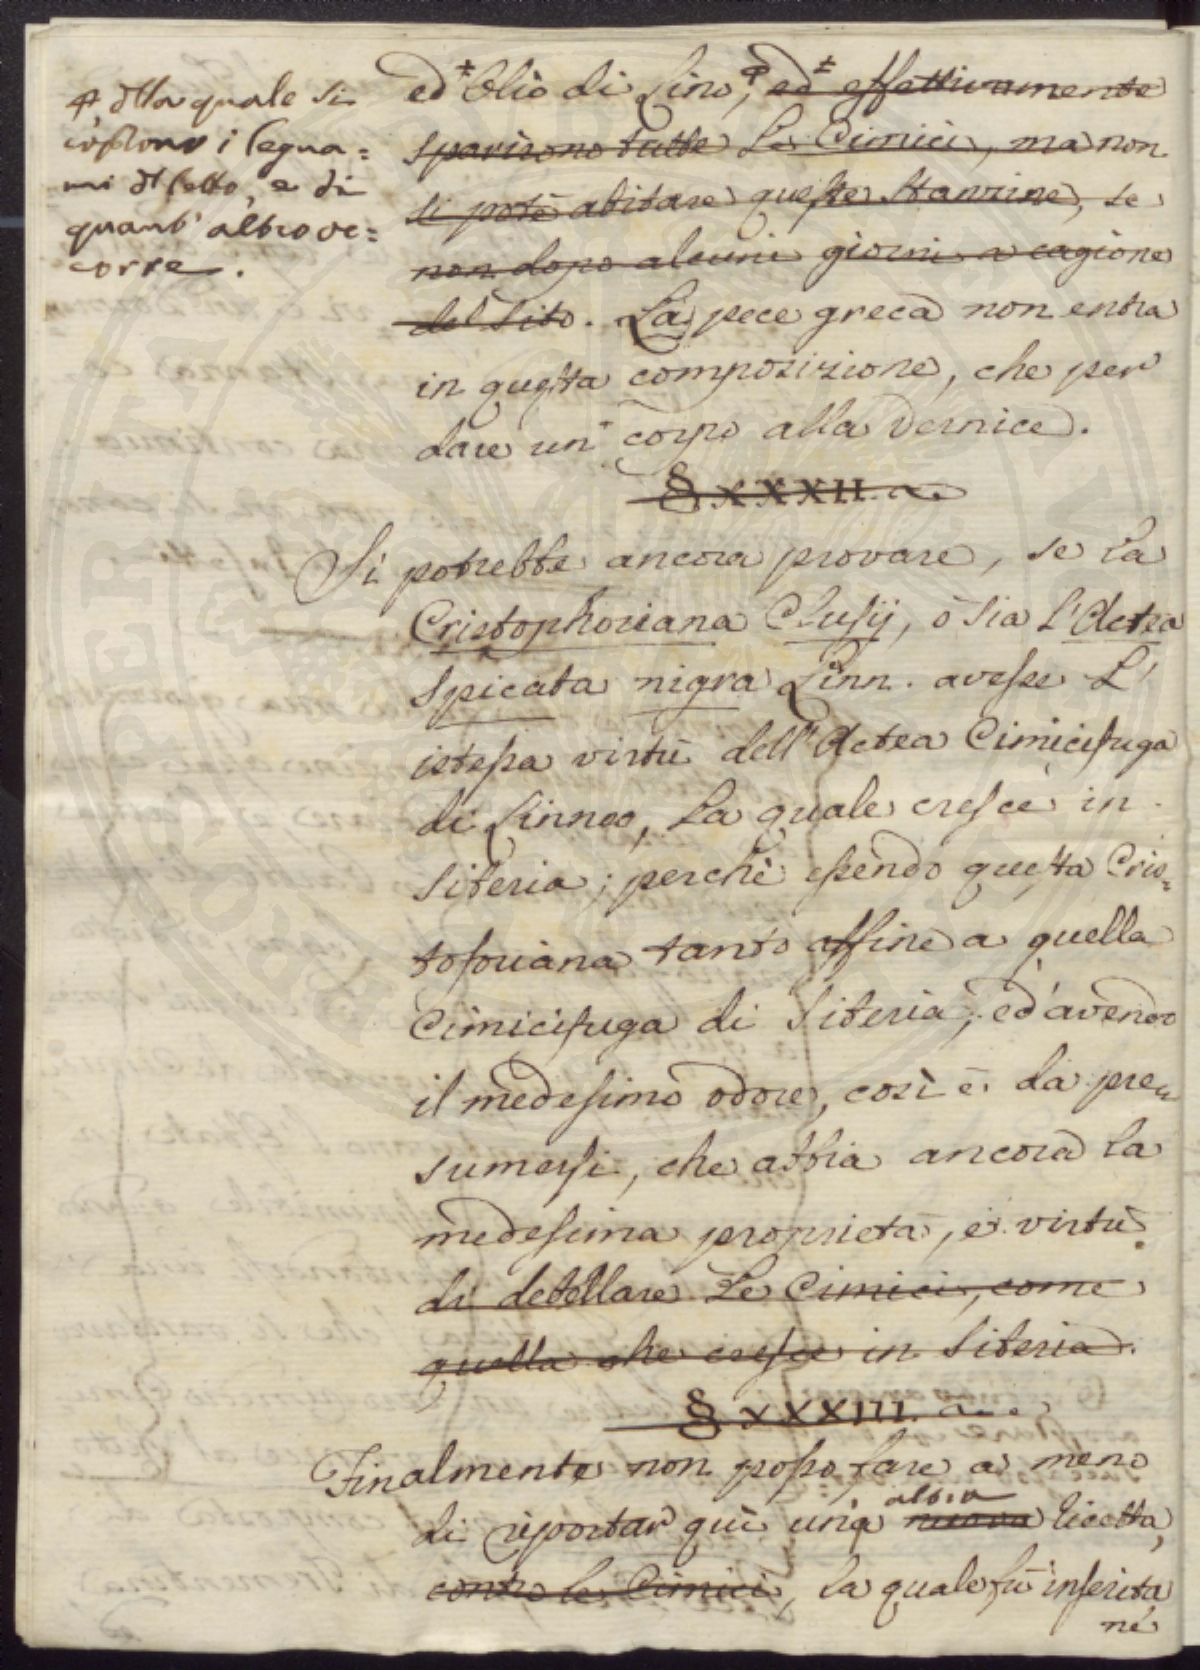 ed olio di Lino, ed effettivamente
sparirono tutte Le Cimici, ma non
si potè abitare queste Stanzine, se
non dopo alcuni giorni a cagione
del Sito. La pece greca non entra
in questa composizione, che per
dare un corpo alla vernice.
§ XXXII.
Si potrebbe ancora provare, se la
Cristophoriana Clusij, ò sia l'Actea
spicata nigra Linn. avesse L'
istessa virtù dell'Actea Cimicifuga
di Linneo, La quale cresce in
Siberia; perchè essendo questa Cris=
tofoviana tanto affine a quella
Cimicifuga di Siberia, ed avendo
il medesimo odore, così è da pre=
sumersi, che abbia ancora la
medesima proprietà, e virtù
di debellare Le Cimici, come
quella che cresce in Siberia.
§ XXXIII.
Finalmente non posso fare a meno
di riportar quì una nuova altra ricetta,
contro le Cimici, la quale fù inserita
né
della quale si
i legna=
mi di letto, e di
quant'altro oc=
corre.